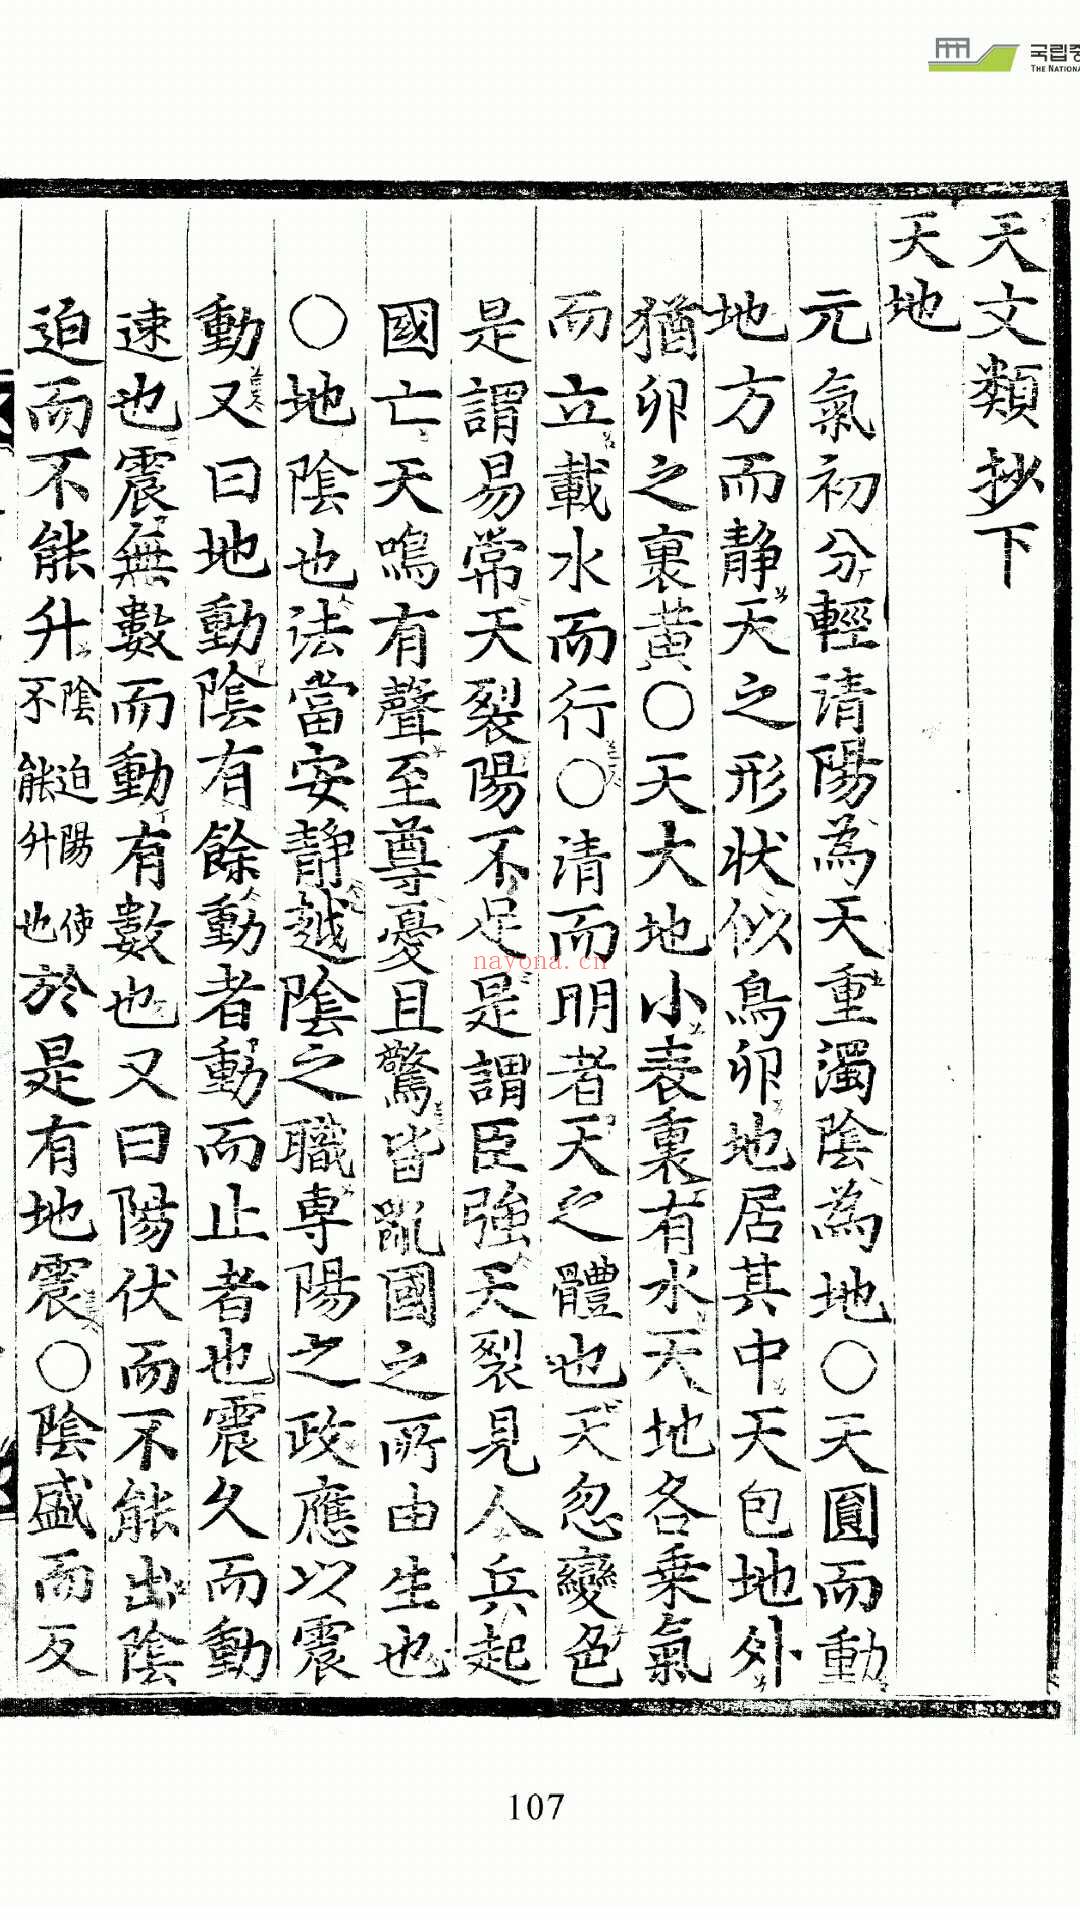 국립중
THE NATIONA
天文類抄下
天地
元氣初分輕清陽為天重濁陰為地〇天圓而動
地方而静天之形状似鳥卵地居其中天包地外
猶卵之裏黄〇天大地小表裏有水天地各乗氣
而立載水而行〇清而明者天之體也天忽變色
是謂易常天裂陽不足是謂臣強天裂見人兵起
國亡天鳴有聲至尊憂且驚皆亂國之所由生也
〇地陰也法當安静越陰之職専陽之政應以震
動又曰地動陰有餘動者動而止者也震久而動
速也震無數而動有數也又曰陽伏而不能出陰
迫而不能升陰迫陽使不能升也於是有地震〇陰盛而反
nayona.cn
107